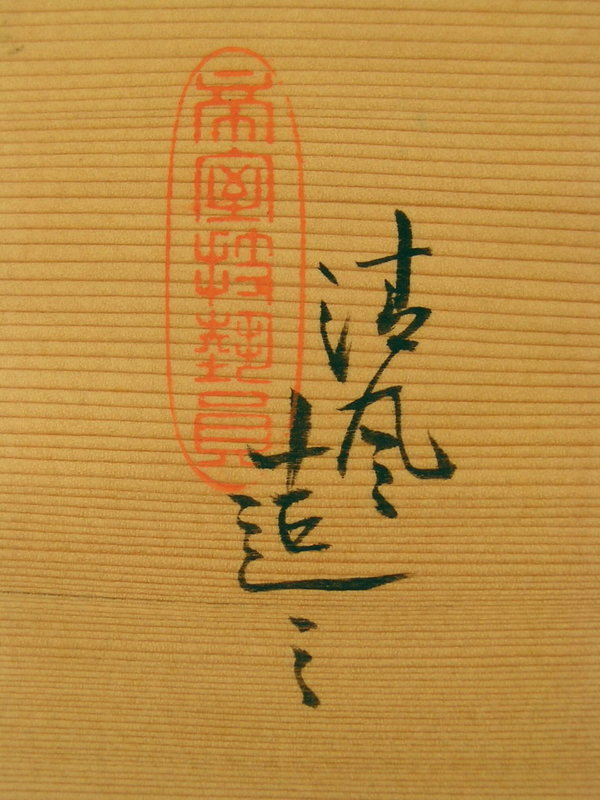 清風
造之
帝室技藝員